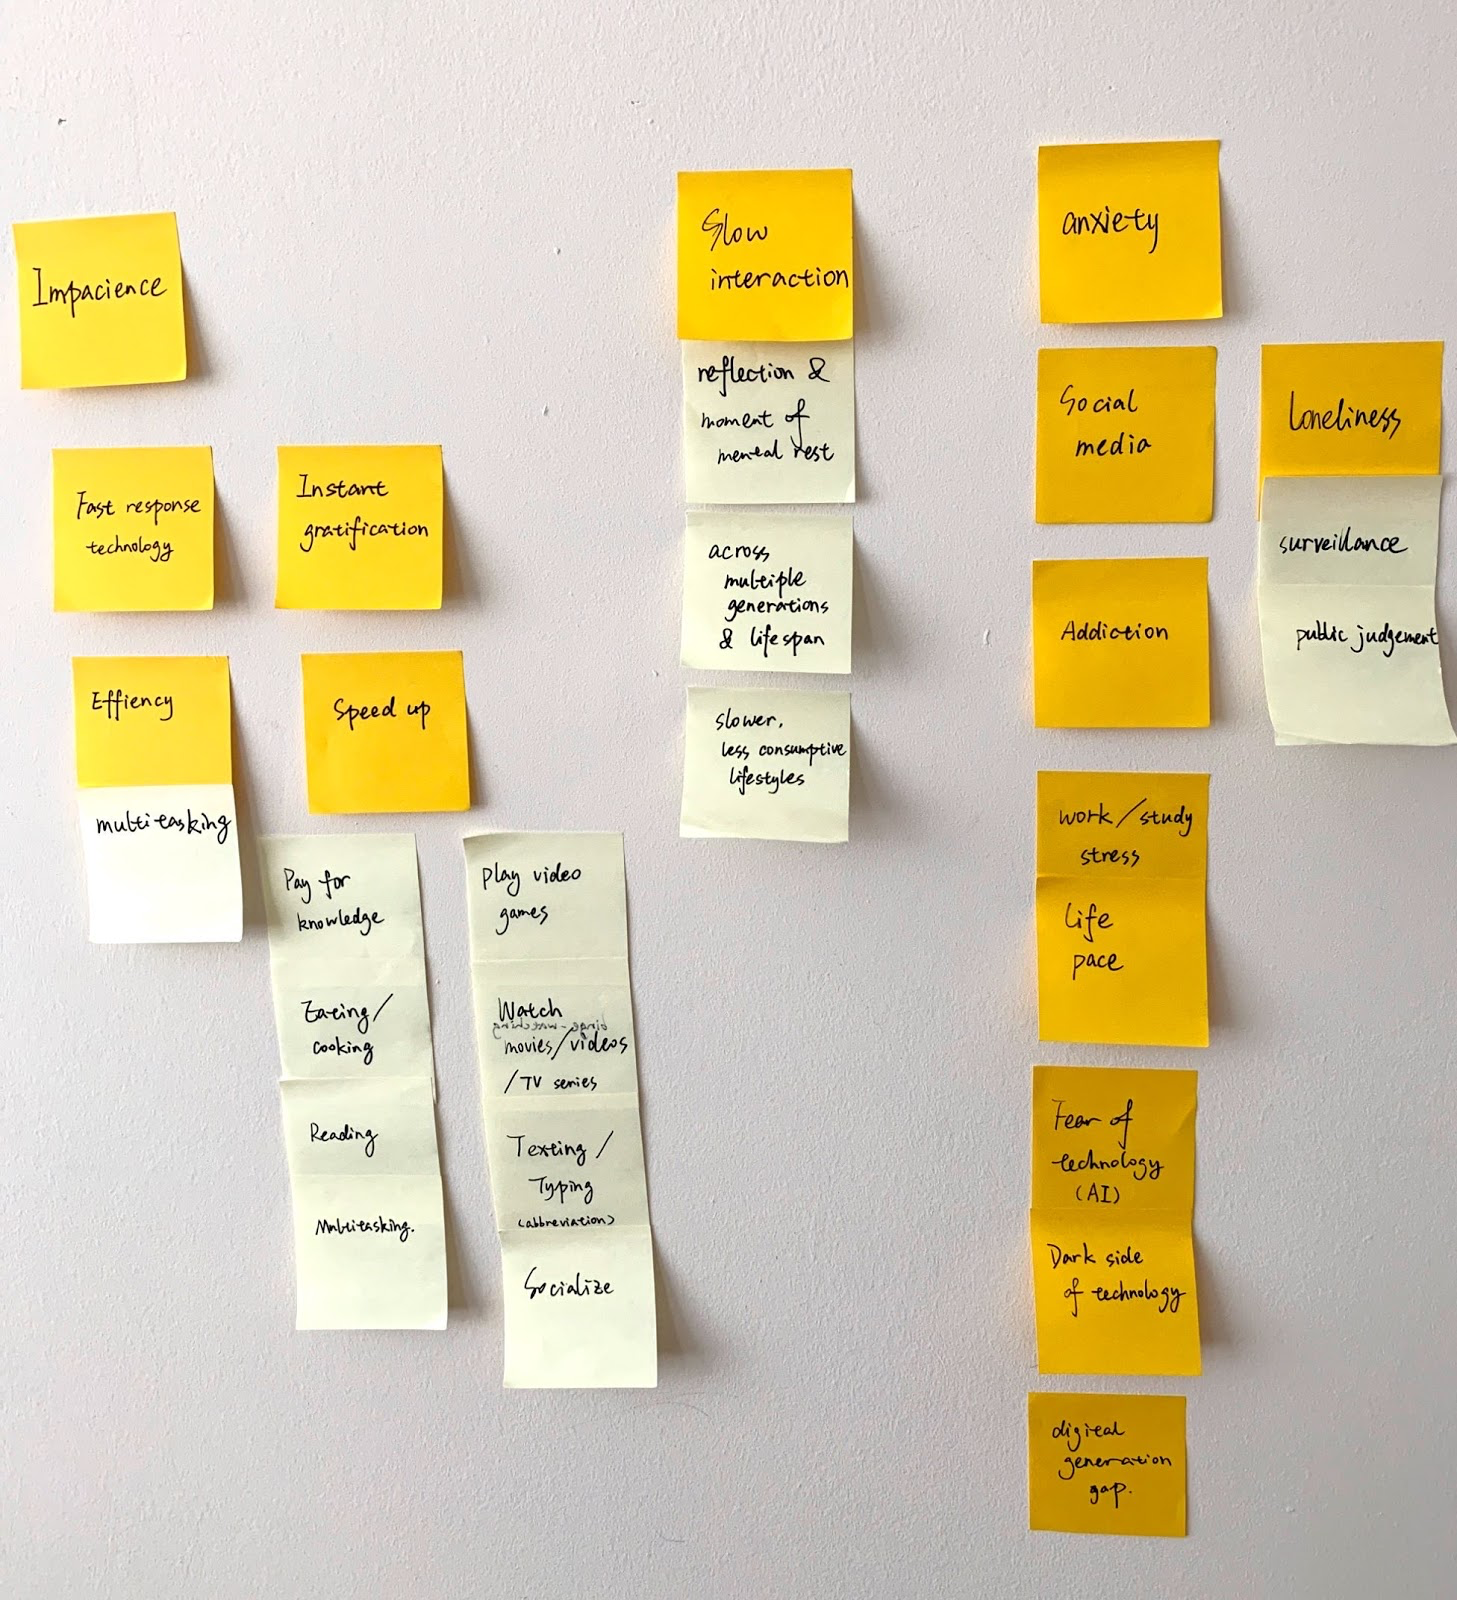 Impacience
Fast response
technology
Instant
gratification
Effiency
multitasking
Speed up
Pay for
knowledge
Eating/
cooking
Reading
Multitasking.
play video
games
Watch
binge-watching
movies/videos
/TV series
Texting/
Typing
(abbreviation)
Socialize
Slow
interaction
reflection &
moment of
mental rest
across
multiple
generations
& lifespan
slower,
less consumptive
lifestyles
anxiety
Social
media
Addiction
work/study
stress
life
pace
Fear of
technology
(AI)
Dark side
of technology
digital
generation
gap.
loneliness
surveillance
public judgement